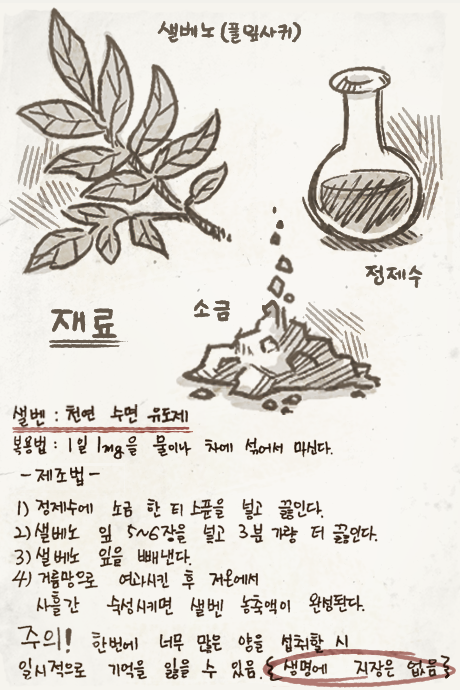 샐베노 (풀잎사귀)
정제수
소금
재료
샐벤 : 천연 수면 유도제
복용법 : 1일 1mg을 물이나 차에 섞어서 마신다.
- 제조법 -
1) 정제수에 소금 한 티스푼을 넣고 끓인다.
2) 샐베노 잎 5~6장을 넣고 3분 가량 더 끓인다.
3) 샐베노 잎을 빼낸다.
4) 거름망으로 여과시킨 후 저온에서
사흘간 숙성시키면 샐벤 농축액이 완성된다.
주의! 한번에 너무 많은 양을 섭취할 시
일시적으로 기억을 잃을 수 있음. {생명에 지장은 없음}